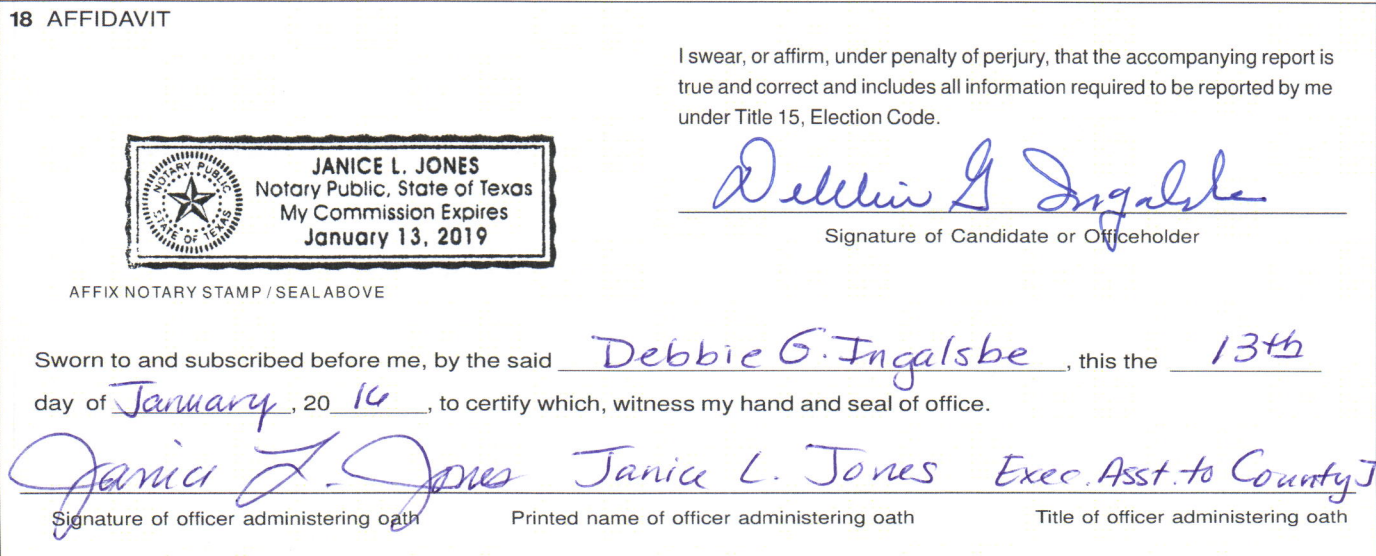 18 AFFIDAVIT
I swear, or affirm, under penalty of perjury, that the accompanying report is
true and correct and includes all information required to be reported by me
under Title 15, Election Code.
JANICE L. JONES
Notary Public, State of Texas
My Commission Expires
January 13, 2019
NOTARY PUBLIC
STATE OF TEXAS
Debbie G Ingalsbe
Signature of Candidate or Officeholder
AFFIX NOTARY STAMP / SEAL ABOVE
Sworn to and subscribed before me, by the said Debbie G. Ingalsbe, this the 13th
day of January, 20 16, to certify which, witness my hand and seal of office.
Janice L. Jones Janice L. Jones Exec. Asst. to County J
Signature of officer administering oath Printed name of officer administering oath Title of officer administering oath